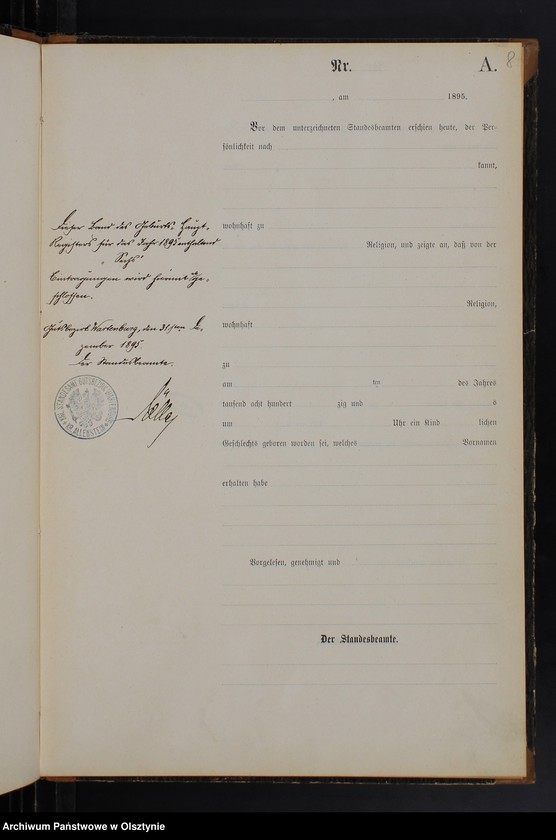 8
Nr. A.
, am 1895.
Vor dem unterzeichneten Standesbeamten erschien heute, der Per-
sönlichkeit nach
kannt,
wohnhaft zu
Religion, und zeigte an, daß von der
Religion,
wohnhaft
zu
am ten des Jahres
tausend acht hundert zig und s
um Uhr ein Kind lichen
Geschlechts geboren worden sei, welches Vornamen
erhalten habe
Vorgelesen, genehmigt und
Der Standesbeamte.
Dieser Band des Geburts-Haupt-
Registers für das Jahr 1895 enthaltend
„Sechs"
Eintragungen wird hiermit abge-
schlossen.
Gutsbezirk Wartenburg, den 31ten De-
zember 1895.
Der Standesbeamte.
Archiwum Państwowe w Olsztynie